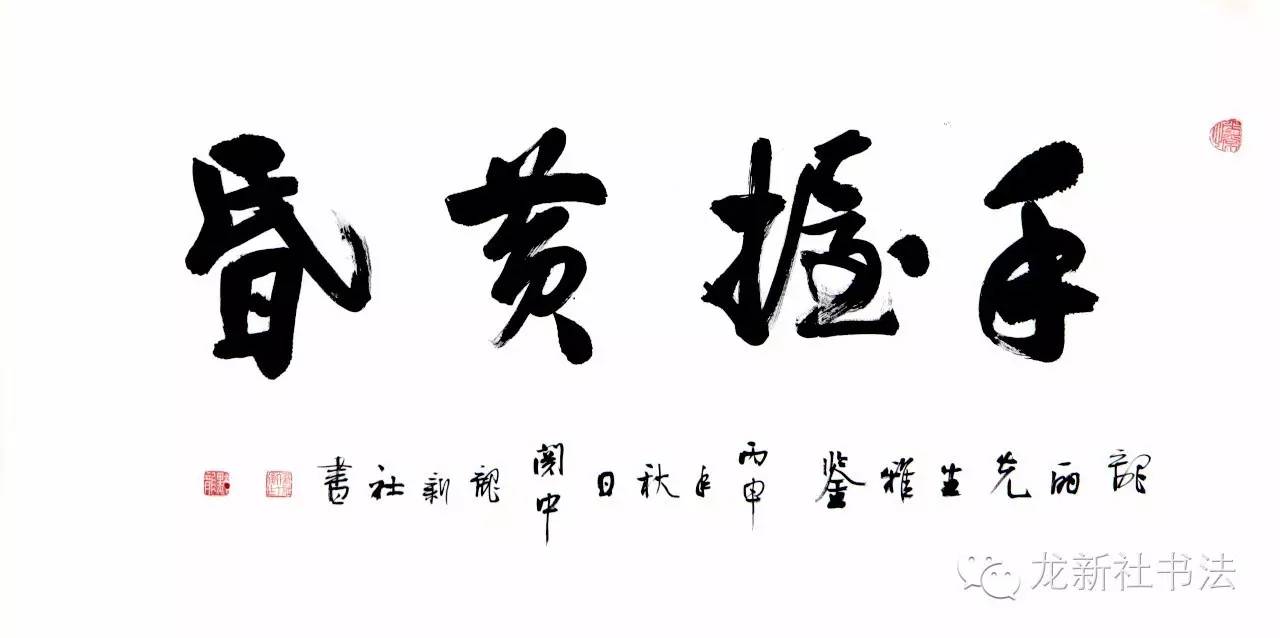 手握黄昏
龍丽先生雅鉴丙申年秋日关中龍新社书
龙新社书法